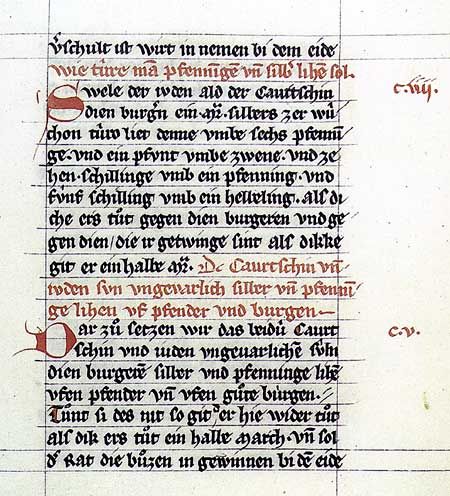 v̓schult ist wirt in nemen bi dem eide
wie tv̓re mā pfenningē vn̄ silb̓ lihē sol.
c. iiij.
Swele der ivden ald der Cauttschin
dien burg̓n ein . m̄r. silbers zer wů
chon tv̓ro liet denne vmbe sechs pfenni
ge . vnd ein pfvnt vmbe zwene . vnd ze
hen . schillinge vmb ein pfenning . vnd
fv̓nf schilling vmb ein hellelīg . als di
che ers tůt gegen dien burgeren vnd ge
gen dien / die ir getwinge sint als dikke
git er ein halbe m̄r. De Caurtschin vn̄
ivden svn vngevarlich silber vn̄ pfenni
ge lihen vf pfender vnd burgen .
c. v.
Dar zů setzen wir das beidv̓ Caurt
schin vnd iuden vngeuarlichē sv̓ln
dien burgerē silber vnd pfenninge lihē
vfen pfender vn̄ vfen gůte bv̓rgen .
Tůnt si des nit so git d̓ er hie wider tůt
als dik ers tůt ein halbe march . vn̄ sol
d̓ Rat die bůzen in gewinnen bi dē eide